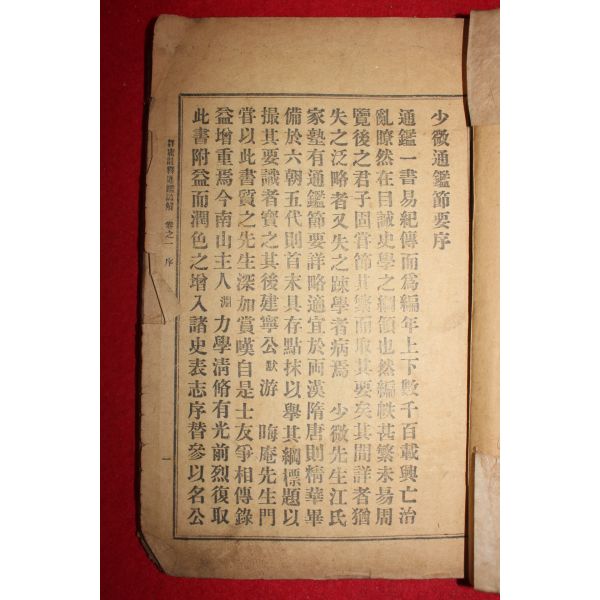 少微通鑑節要序
通鑑一書易紀傳而爲編年上下數千百載興亡治
亂瞭然在目誠史學之綱領也然編帙甚繁未易周
覽後之君子固嘗節其繁而取其要矣其間詳者猶
失之泛略者又失之踈學者病焉 少微先生江氏
家塾有通鑑節要詳略適宜於兩漢隋唐則精華畢
備於六朝五代則首末具存點抹以擧其綱標題以
撮其要識者寶之其後建寧公默游 晦庵先生門
嘗以此書質之先生深加賞嘆自是士友爭相傳錄
益增重焉今南山主人淵力學淸脩有光前烈復取
此書附益而潤色之增入諸史表志序替參以名公
詳密註釋通鑑諺解 卷之一 序 一